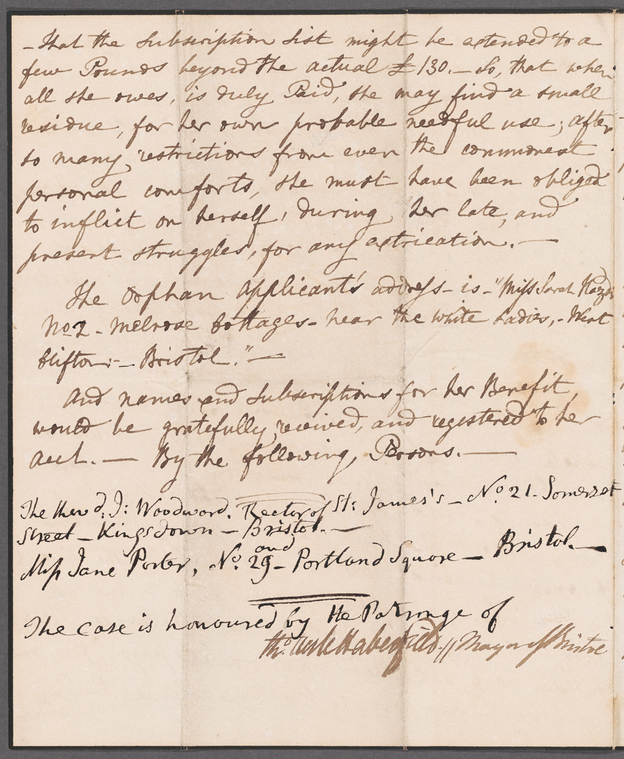 - That the Subscription List might be extended to a
few Pounds beyond the actual £130. - So, that when
all she owes, is duly Paid, she may find a small
residue, for her own probable needful use; after
so many restrictions from even the commonest
personal comforts, she must have been obliged
to inflict on herself, during her late, and
present struggles, for any extrication. -
The Orphan Applicant's address - is - "Miss Sarah
No 2 - Melrose Cottages - near the white Ladies, - West
Clifton - Bristol." -
And names and Subscriptions for her Benefit
would be gratefully received, and registered to her
acct. - By the following, Persons. -
The Revd. J: Woodward. Rector of St: James's - No. 21. Somerset
Street - Kingsdown - Bristol. -
and
Miss Jane Porter, No. 29 - Portland Square - Bristol. -
The case is honoured by the Patronage of
Mayor of Bristol